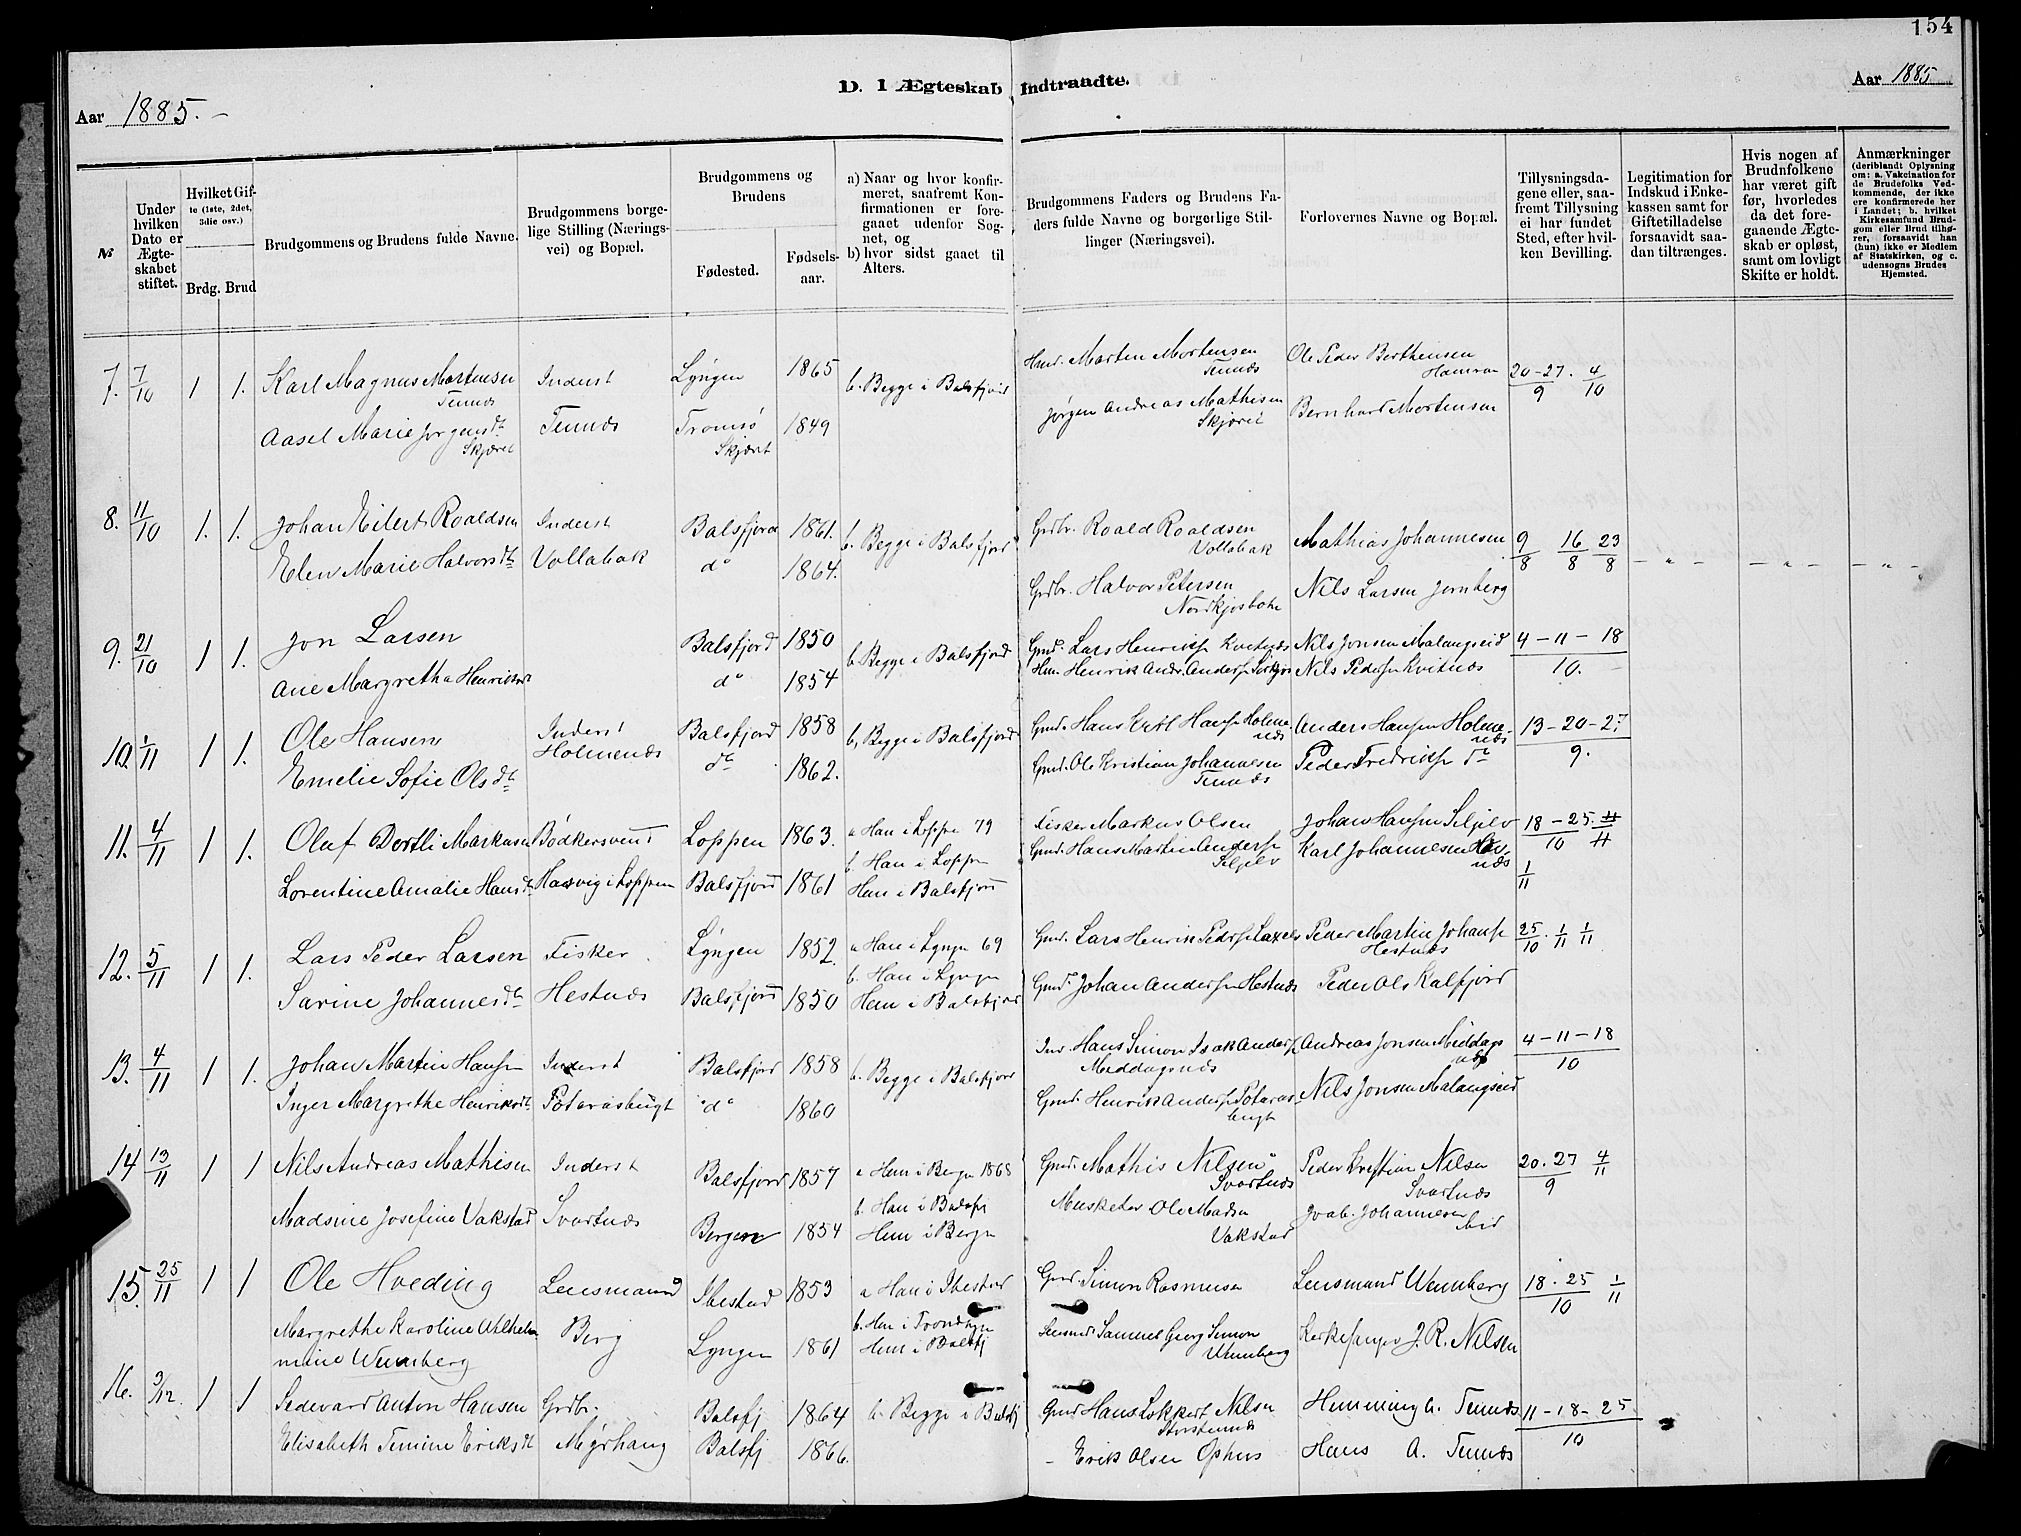 154
D. I Ægteskab Indtraadte.
Aar 1885.
Aar 1885
№
Under hvilken Dato er Ægteskabet stiftet.
Hvilket Gifte (1ste, 2det, 3die osv.)
Brdg. Brud
Brudgommens og Brudens fulde Navne.
Brudgommens borgelige Stilling (Næringsvei) og Bopæl.
Brudgommens og Brudens
Fødested.
Fødselsaar.
a) Naar og hvor konfirmeret, saafremt Konfirmationen er foregaaet udenfor Sognet, og
b) hvor sidst gaaet til Alters.
Brudgommens Faders og Brudens Faders fulde Navne og borgerlige Stillinger (Næringsvei).
Forlovernes Navne og Bopæl.
Tillysningsdagene eller, saafremt Tillysning ei har fundet Sted, efter hvilken Bevilling.
Legitimation for Indskud i Enkekassen samt for Giftetilladelse forsaavidt saadan tiltrænges.
Hvis nogen af Brudnfolkene har været gift før, hvorledes da det foregaaende Ægteskab er opløst, samt om lovligt Skifte er holdt.
Anmærkninger (deriblandt Oplysning om: a. Vakcination for de Brudefolks Vedkommende, der ikke ere konfirmerede her i Landet; b. hvilket Kirkesamfund Brudgom eller Brud tilhører, forsaavidt han (hun) ikke er Medlem af Statskirken, og c. udensogns Brudes Hjemsted.
7. 7/10 1 1. Karl Magnus Mortensen Inderst Lyngen 1865 b. Begge i Balsfjord Marten Mortensen Ole Peder Berthensen 20-27. 4
Tennes Tennes 9 10
Aasel Marie Jørgensdt Tennes Tromsø 1849 Jørgen Andreas Mathisen Bernhard Mortensen
Skjæret Skjæret Skjæret
8. 11/10 1. 1. Johan Eilert Roaldsen Inderst Balsfjord 1861. b. Begge i Balsfjord Grdbr. Roald Roaldsen Mathias Johannesen 9/8 16/8 23/8
Vollabak
Elen Marie Halvorsdt Vollabak do 1864. Grdbr. Halvor Petersen Nils Larsen Jernberg
Nordkjosbotn
9. 21/10 1 1. Jon Larsen Balsfjord 1850 b. Begge i Balsfjord Gmd. Lars Henriks Nils Jonsen Malangseid 4-11-18
Ane Margretha Henriksdt do 1854 Henrik Andr. Anders Nils Peders Kvitnæs 10.
10. 1/11 1 1. Ole Hansen Inderst Balsfjord 1858 b. Begge i Balsfjord Gmd. Hans Holmenæs Anders Hansen Holmenæs 13-20-27
Holmenæs
Emelie Sofie Olsdt do 1862. Gmd. Ole Kristian Johannesen Peder Fredriks do 9.
Tennæs
11. 4/11 1 1. Oluf Markusen Bødkersvend Loppen 1863. a Han i Loppen 79 Fisker Markus Olsen Johan Hansen Seljelv 18-25
b. Han i Loppen Gmd. Hans Martin Anders Karl Johannesen 10
Seljelv
Lorentine Amalie Hansdt Hasvig i Loppen Balsfjord 1861 Hun i Balsfjord 1/11
12. 5/11 1 1. Lars Peder Larsen Fisker Lyngen 1852 a Han i Lyngen 69 Gmd. Lars Henrik Peders Peder Martin Johans 25/10. 1/11 1/11
b. Han i Lyngen Hestnæs
Sarine Johannesdt Hestnæs Balsfjord 1850 Hun i Balsfjord Gmd. Johan Anders Hestnæs Peder Ols Kalfjord
13. 4/11 1 1. Johan Martin Hansen Inderst Balsfjord 1858 b. Begge i Balsfjord Hans Simon Isak Anders Andreas Jonsen Middagsnæs 4-11-18
Middagsnæs 10
Inger Margrethe Henriksdt Potarasbugt do 1860 Gmd. Henrik Anders Potarasbugt Nils Jonsen Malangseid
14 13/11 1 1 Nils Andreas Mathisen Inderst Balsfjord 1857 a Hun i Bergen 1868 Gmd. Mathis Nilsen Peder Kristian Nilsen 20.27 4
Svartnæs Svartnæs 9 11
b. Han i Balsfj
Madsine Josefine Vakstad Svartnæs Bergen 1854 Hun i Bergen Musketer Ole Madsen Johannesen
Vakstad
15. 25/11 1 1 Ole Hveding Lensmand Ibestad 1853 a Han i Ibestad Gmd. Simon Rasmusen Lensmand Wennberg 18.25 1
10 11
Margrethe Karoline Vilhelmmine Wennberg Berg Lyngen 1861 Hun i Balsfj Samuel Georg Simon Wennberg Kirkesanger J. R. Nilsen
16. 3/12. 1 1 Sedevard Anton Hansen Grdbr. Balsfj 1864 b. Begge i Balsfj Gmd Hans Lokkert Nilsen Hemming A. Tennæs 11-18-25
Storstennæs 10
Elisabeth Temine Eriksdt Myrhaug Balsfj 1866. - Erik Olsen Ophus Hans A. Tennæs